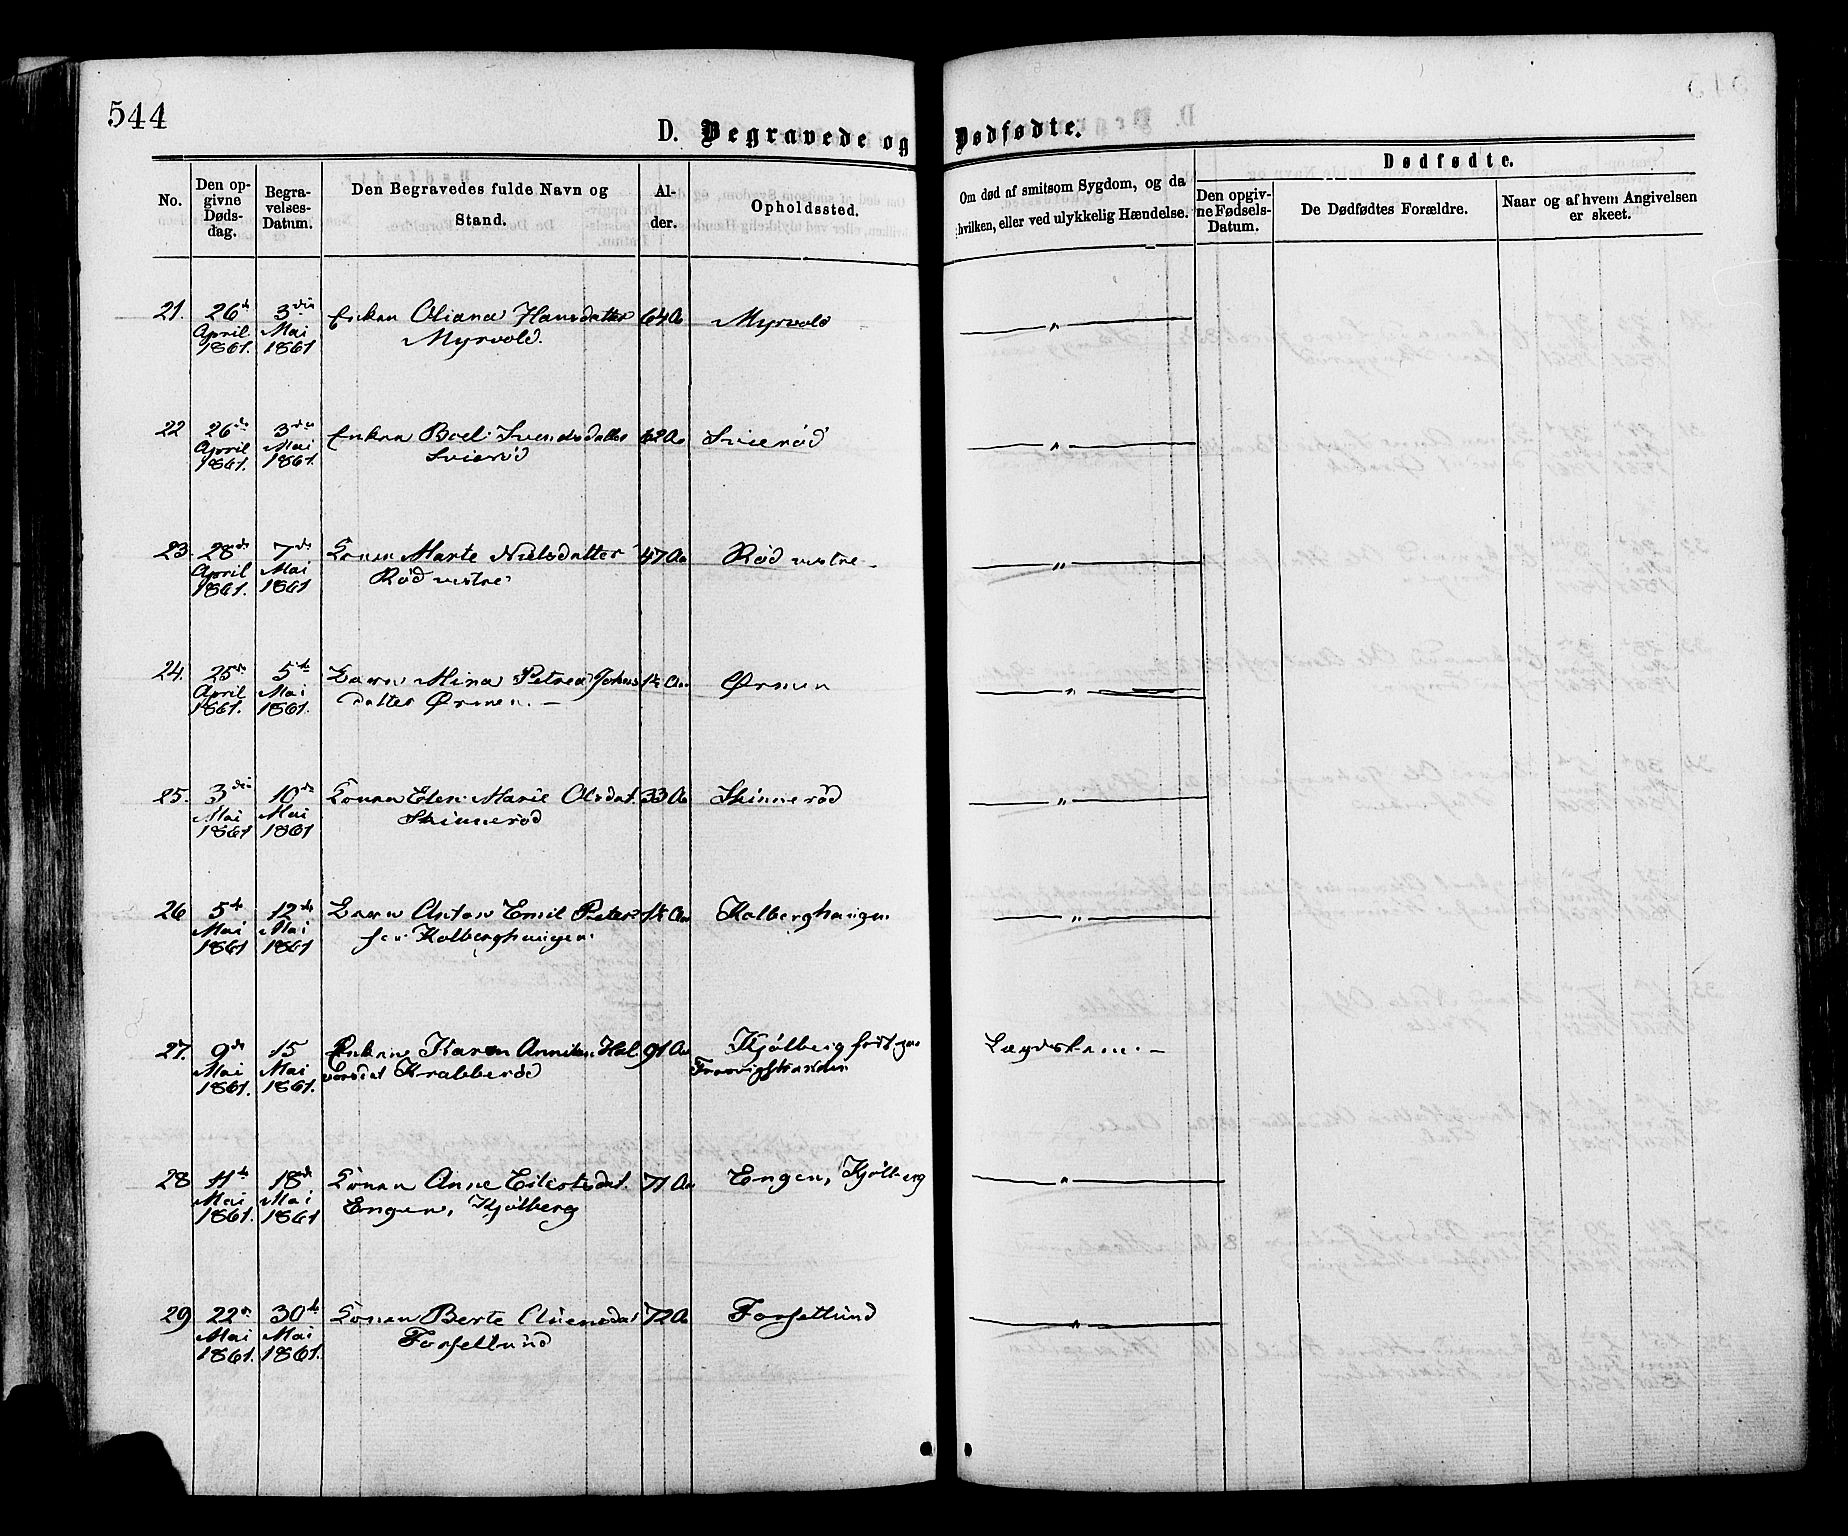 544
D. Begravede og Dødfødte.
No.
Den opgivne Dødsdag.
Begravelses-Datum.
Den Begravedes fulde Navn og Stand.
Alder.
Opholdssted.
Om død af smitsom Sygdom, og da hvilken, eller ved ulykkelig Hændelse.
Dødfødte.
Den opgivne Fødsels-Datum.
De Dødfødtes Forældre.
Naar og af hvem Angivelsen er skeet.
21. 26de 3die Enken Oliana Hansdatter 64 Aa Myrvold "
April Mai Myrvold.
1861. 1861
22 26de 3die Enken Boel Svendsdatter 62 Aa Svierød "
April Mai Svierød
1861. 1861.
23. 28de 7de Konen Marte Nielsdatter 47 Aa Rød vestre "
April Mai Rød vestre
1861. 1861
24. 25de 5te Barn Mina Petrea Johns Ørmen "
April Mai datter Ørmen.
1861. 1861.
25. 3die 10de Konen Elen Marie Olsdat. 33 Aa Skinnerød "
Mai Mai Skinnerød
1861 1861
26 5te 12te Barn Anton Emil Peter Kolberghaugen "
Mai Mai sen Kolberghaugen
1861 1861
27. 9de 15 Enken Karen Hal 91 Aa Kjølberg født paa
Mai Mai vorsdat Krabberød
1861. 1861. Lægdslem. –
28 11te 18de Konen Anne Eilertsdat. 71 Aa Engen, Kjølberg "
Mai Mai Engen, Kjølberg
1861. 1861
29 22de 30te Konen Berte 72 Aa Forsetlund "
Mai Mai Forsetlund
1861. 1861.